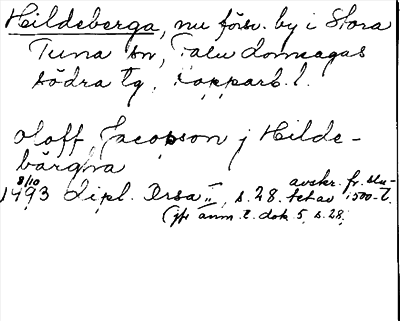 Hildeberga, nu försv. by i Stora
Tuna sn, Falu domsagas
södra tg, Kopparb. l.
Oloff Jacopson j Hilde-
bärgha
8/10
1493 dipl. Orsa II, s. 28. avskr. fr. slu-
tet av 1500-t.
(jfr anm. t. dok 5, s. 28)